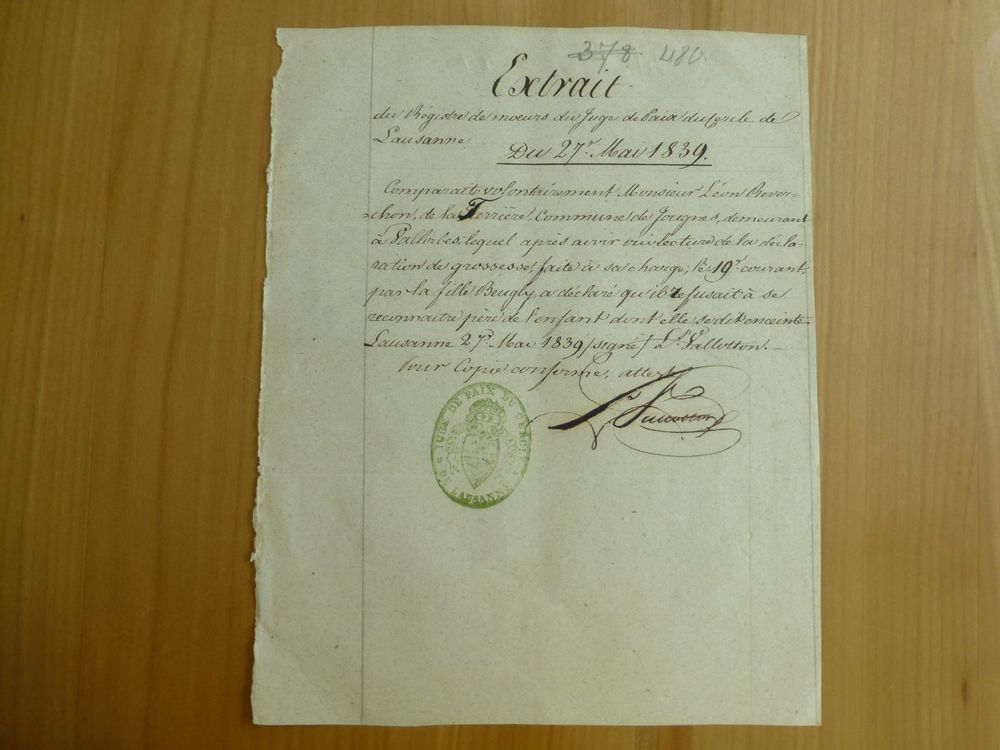 378 480.
Extrait
du Régistre de moeurs du Juge de Paix du Cercle de
Lausanne
Du 27r. Mai 1839.
Comparait volontairement Monsieur Léon Rever-
-chon, de la Ferrière, Commune de Jougnes, demeurant
à Vallorbes, lequel après avoir oui lecture de la décla-
ration de grossesse, faite à sa charge, le 19r. courant,
par la fille Beugly, a déclaré qu'il refusait à se
reconnaitre père de l'enfant dont elle se dit enceinte.
Lausanne 27r. Mai 1839 /signé/ Ls. Vallotton.
Pour Copie conforme, atteste
Vallotton
JUGE DE PAIX DU CERCLE
DE LAUSANNE